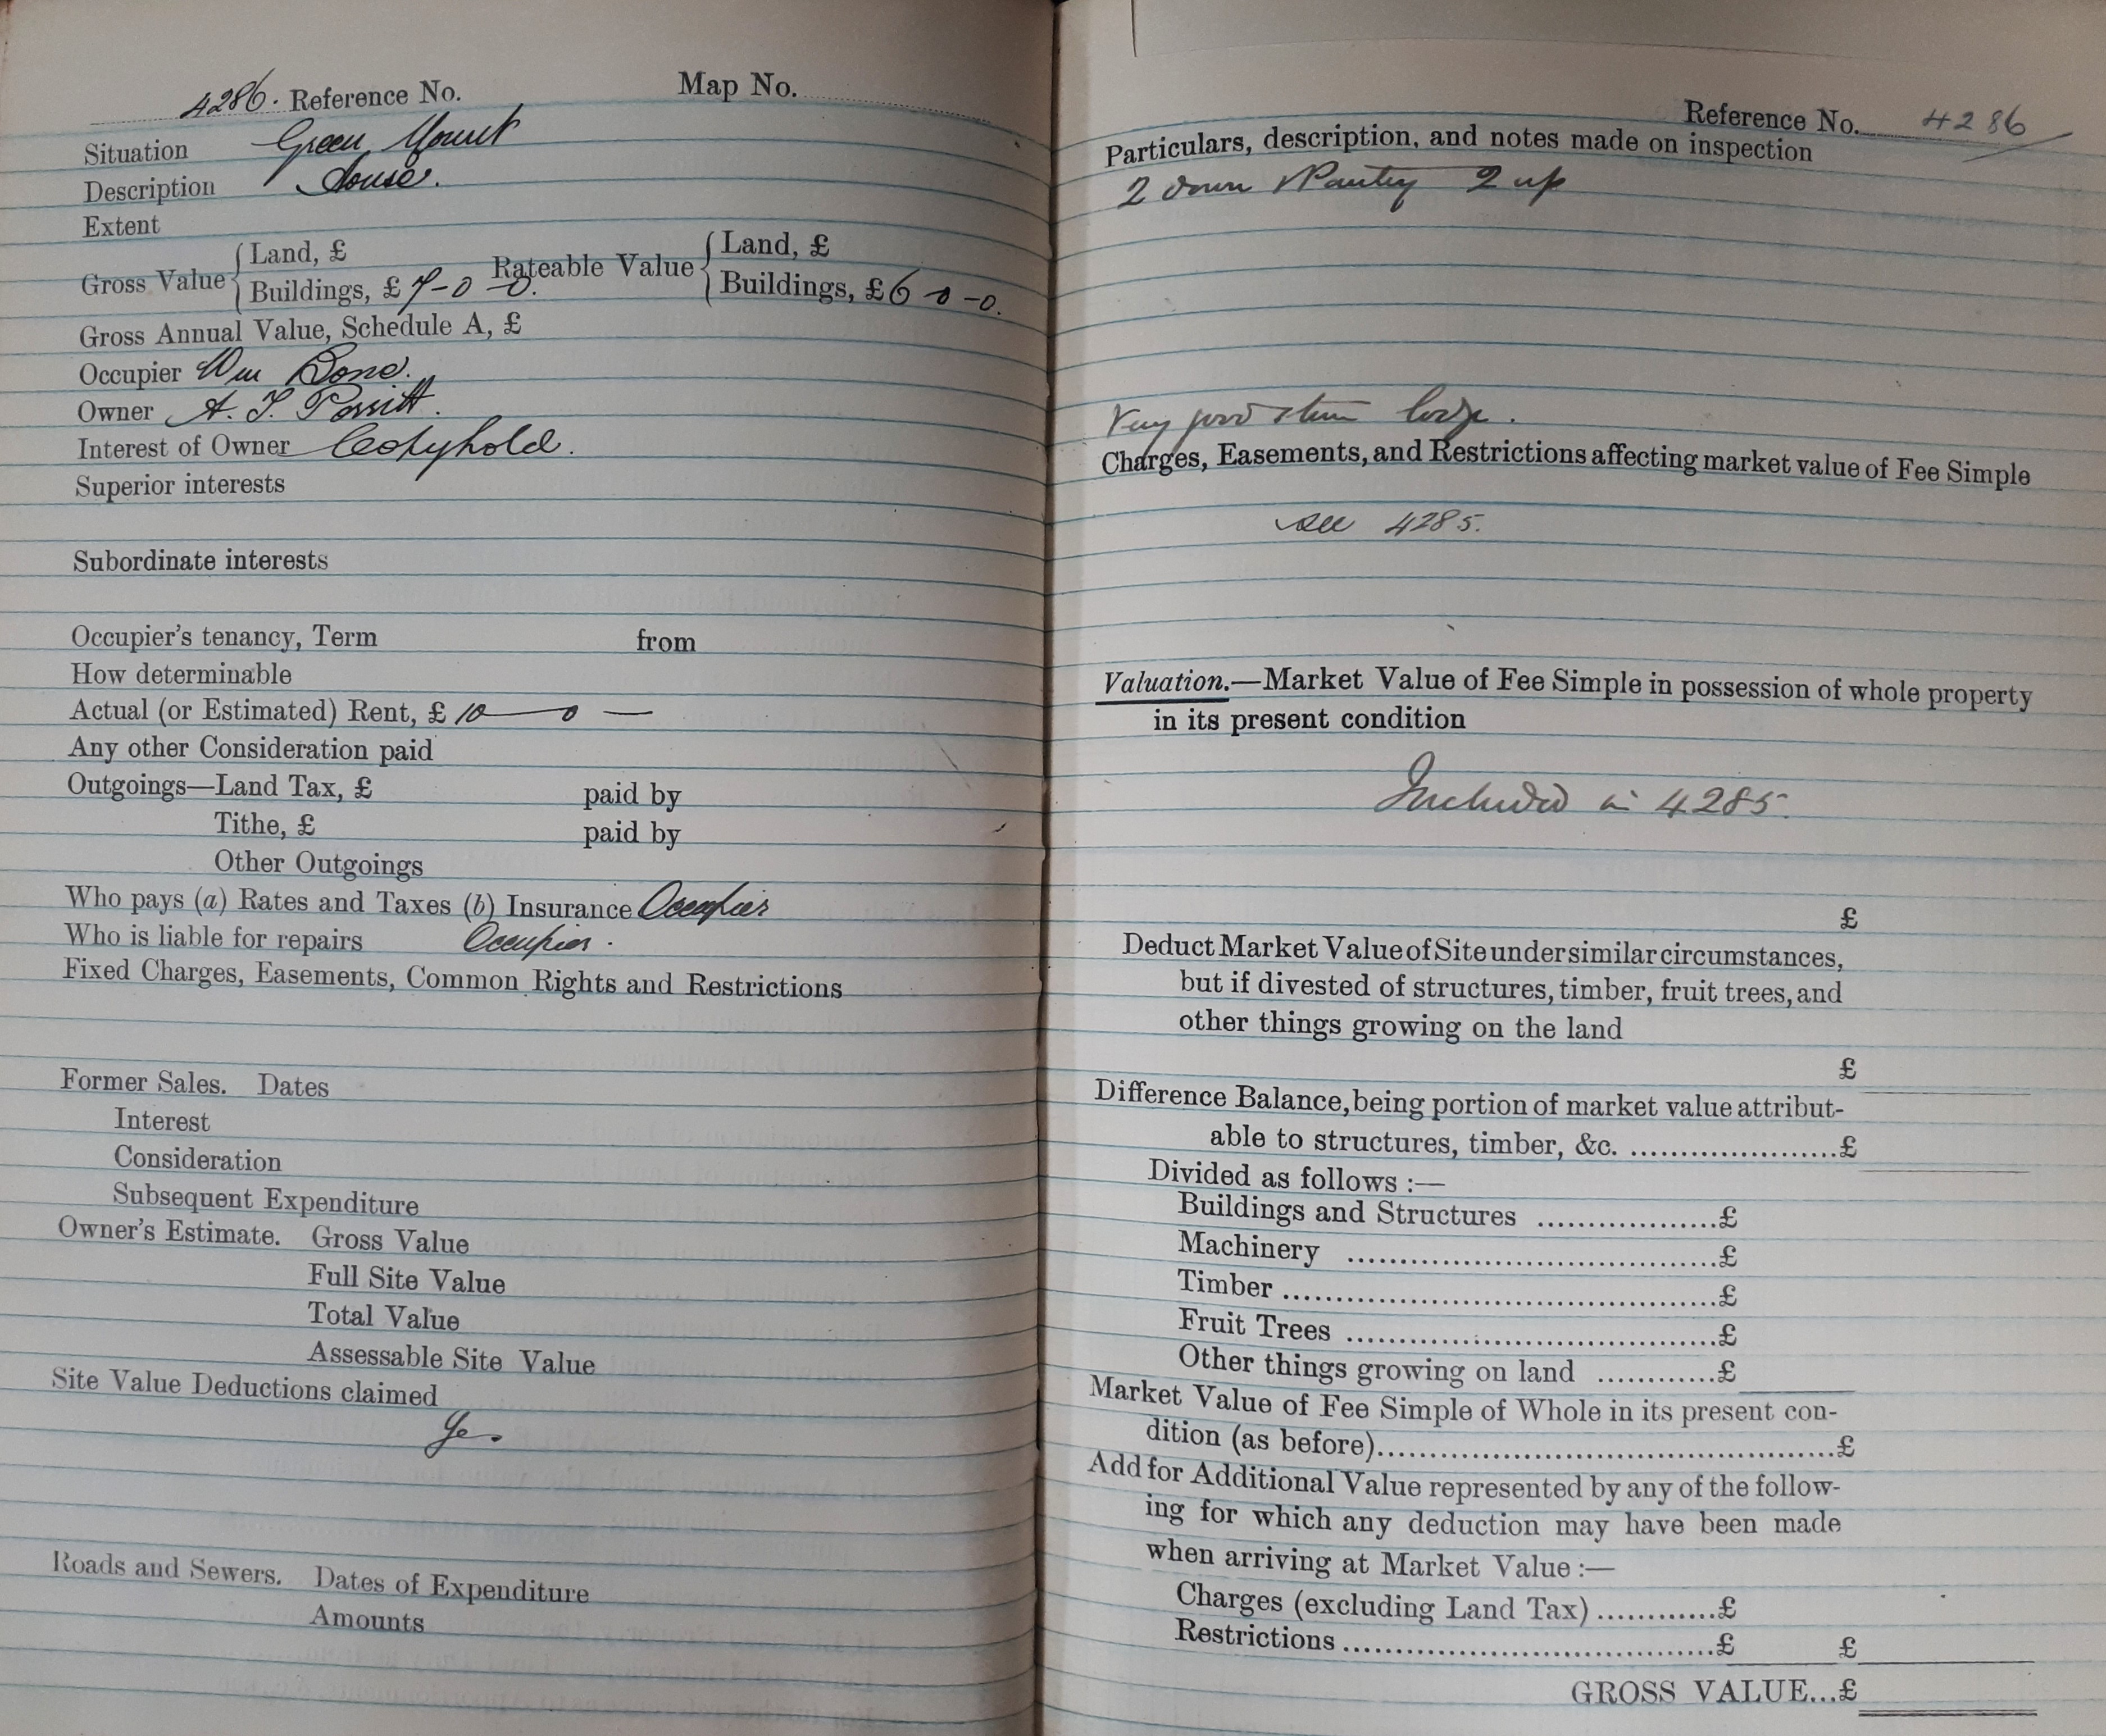 4286. Reference No. Map No.
Situation Green Mount
Description House.
Extent
Gross Value { Land, £ Rateable Value { Land, £
Buildings, £ 7-0-0. Buildings, £ 6-0-0.
Gross Annual Value, Schedule A, £
Occupier Wm Bone.
Owner A. T. Porritt.
Interest of Owner Copyhold.
Superior interests
Subordinate interests
Occupier's tenancy, Term from
How determinable
Actual (or Estimated) Rent, £ 10 — 0 —
Any other Consideration paid
Outgoings—Land Tax, £ paid by
Tithe, £ paid by
Other Outgoings
Who pays (a) Rates and Taxes (b) Insurance Occupier
Who is liable for repairs Occupier.
Fixed Charges, Easements, Common Rights and Restrictions
Former Sales. Dates
Interest
Consideration
Subsequent Expenditure
Owner's Estimate. Gross Value
Full Site Value
Total Value
Assessable Site Value
Site Value Deductions claimed
Yes
Roads and Sewers. Dates of Expenditure
Amounts
Reference No. 4286
Particulars, description, and notes made on inspection
2 down & Pantry 2 up
Very good stone lodge.
Charges, Easements, and Restrictions affecting market value of Fee Simple
see 4285.
Valuation.—Market Value of Fee Simple in possession of whole property
in its present condition
Included in 4285.
£
Deduct Market Value of Site under similar circumstances,
but if divested of structures, timber, fruit trees, and
other things growing on the land
£
Difference Balance, being portion of market value attribut-
able to structures, timber, &c. .....................£
Divided as follows :—
Buildings and Structures ...................£
Machinery .......................................£
Timber .............................................£
Fruit Trees .......................................£
Other things growing on land ............£
Market Value of Fee Simple of Whole in its present con-
dition (as before)..............................................£
Add for Additional Value represented by any of the follow-
ing for which any deduction may have been made
when arriving at Market Value :—
Charges (excluding Land Tax) ............£
Restrictions .......................................£ £
GROSS VALUE...£